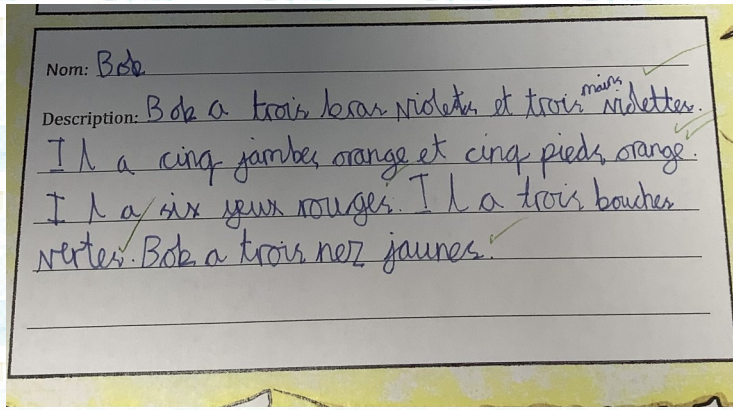 Nom: Bob
Description: Bob a trois bras violets et trois mains violettes.
Il a cinq jambes orange et cinq pieds orange.
Il a six yeux rouges. Il a trois bouches
vertes. Bob a trois nez jaunes.